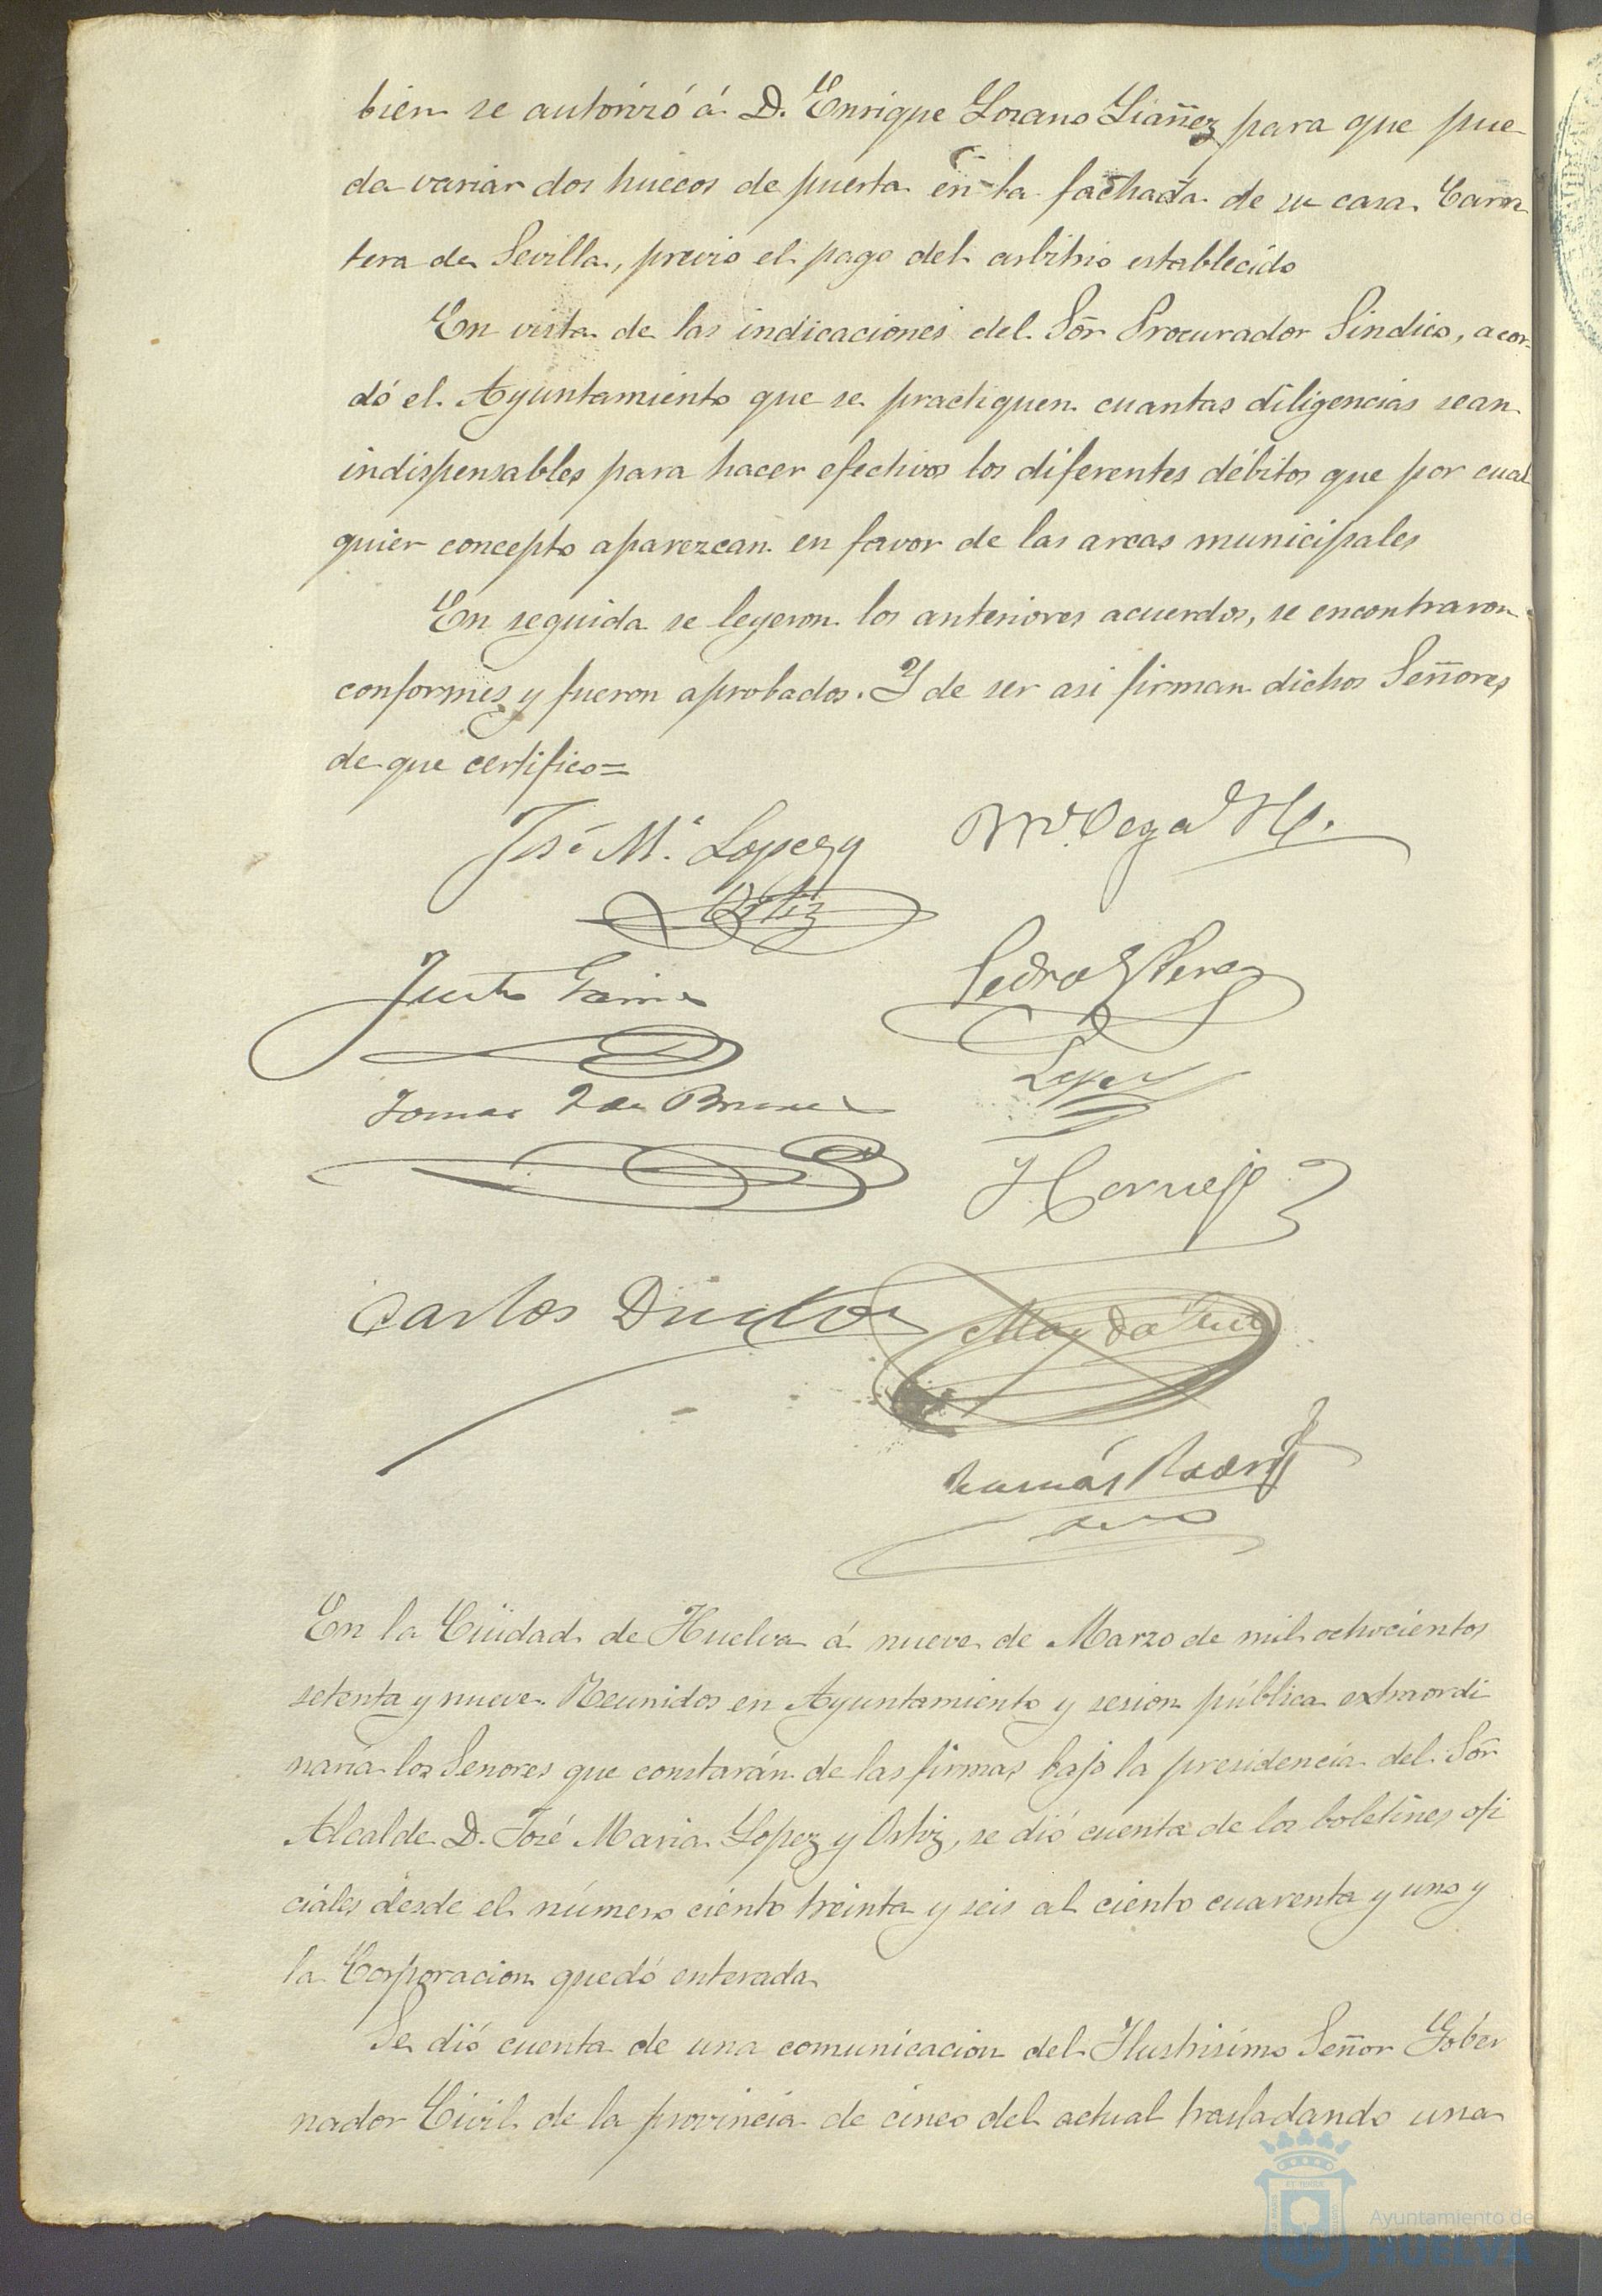 bien se autorizó á D. Enrique Lozano Liáñez para que pue-
da variar dos huecos de puerta en la fachada de su casa Carre-
tera de Sevilla, previo el pago del arbitrio establecido
En vista de las indicaciones del Sor Procurador Sindico, acor-
dó el Ayuntamiento que se practiquen cuantas diligencias sean
indispensables para hacer efectivos los diferentes débitos que por cual
quier concepto aparezcan en favor de las arcas municipales
En seguida se leyeron los anteriores acuerdos, se encontraron
conformes y fueron aprobados. Y de ser asi firman dichos Señores
de que certifico=
José M.ª Lopez y
Ortiz
Vega
Justo
Pedro Perez
Lopez
Tomas
Carlos
Tomás Rodrig
En la Ciudad de Huelva á nueve de Marzo de mil ochocientos
setenta y nueve. Reunidos en Ayuntamiento y sesion pública extraordi
naria los Senores que constarán de las firmas bajo la presidencia del Sor
Alcalde D. José Maria Lopez y Ortiz, se dió cuenta de los boletines ofi
ciales desde el número ciento treinta y seis al ciento cuarenta y uno y
la Corporacion quedó enterada
Se dió cuenta de una comunicacion del Ilustrisimo Señor Gober
nador Civil de la provincia de cinco del actual trasladando una
Ayuntamiento de
HUELVA